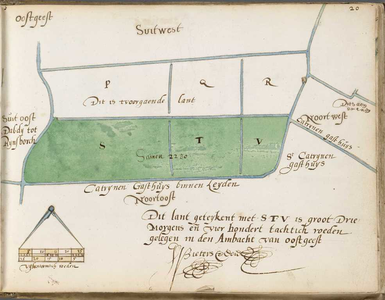 oostgeest
20
Suitwest
P Q R
Dit is tvoergaende lant
Noortwest
Catrynen gasthuys
Suit oost
Abdy tot
Rynsborch
S T V
Samen 2230
St Catrynen
gasthuys
Catrynen Gasthuys binnen Leyden
Noortoost
Dit lant geteykent met S T V is groot Drie
Morgens en vier hondert tachtich roeden
gelegen in den Ambacht van oostgeest